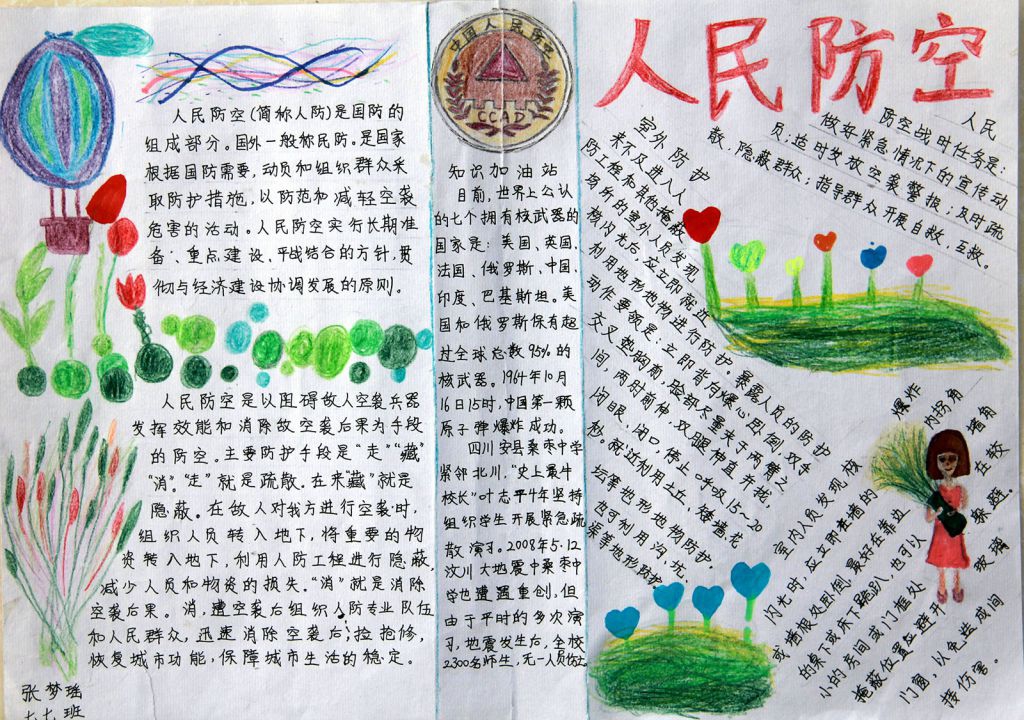 人民防空(简称人防)是国防的
组成部分。国外一般称民防。是国家
根据国防需要,动员和组织群众采
取防护措施,以防范和减轻空袭
危害的活动。人民防空实行长期准
备、重点建设、平战结合的方针,贯
彻与经济建设协调发展的原则。
人民防空是以阻碍敌人空袭兵器
发挥效能和消除敌空袭后果为手段
的防空。主要防护手段是“走”“藏”
“消”。“走”就是疏散。在来“藏”就是
隐蔽。在敌人对我方进行空袭时,
组织人员转入地下,将重要的物
资转入地下,利用人防工程进行隐蔽,
减少人员和物资的损失。“消”就是消除
空袭后果。消,遭空袭后组织人防专业队伍
和人民群众,迅速消除空袭后,抢修,
恢复城市功能,保障城市生活的稳定。
张梦瑶
七七班
中国人民防空
CCAD
知识加油站
目前,世界上公认
的七个拥有核武器的
国家是:美国、英国、
法国、俄罗斯、中国、
印度、巴基斯坦。美
国和俄罗斯保有超
过全球总数95%的
核武器。1964年10月
16日15时,中国第一颗
原子弹爆炸成功。
四川安县桑枣中学
紧邻北川,“史上最牛
校长”叶志平牛年坚持
组织学生开展紧急疏
散演习。2008年5.12
汶川大地震中桑枣中
学也遭遇重创,但
由于平时的多次演
习,地震发生后,全校
2300名师生,无一人员伤亡
人民防空
人民
防空战时任务是:
做好紧急情况下的宣传动
员;适时发放空袭警报;及时疏
散、隐蔽群众;指导群众开展自救,互救。
室外防护
来不及进入人
防工程和其他掩蔽
场所的室外人员发现
核闪光后,应立即就近
利用地形地物进行防护。暴露人员的防护
动作要领是:立即背向爆心卧倒,双手
交叉垫胸前,脸部尽量夹于两臂之
间,两时前伸,双腿伸直并拢,
闭眼、闭口、停止呼吸15~20
秒。就近利用土丘,矮墙,花
坛等地形地物防护。
也可利用沟、坑、
渠等地形防护。
室内人员发现核爆炸
闪光时,应立即在墙的内拐角
或墙根处卧倒,最好在靠近墙角
的桌下或床下蹲趴,也可以在较
小的房间或门框处躲避。
掩蔽位置应避开玻璃
门窗,以免造成间
接伤害。